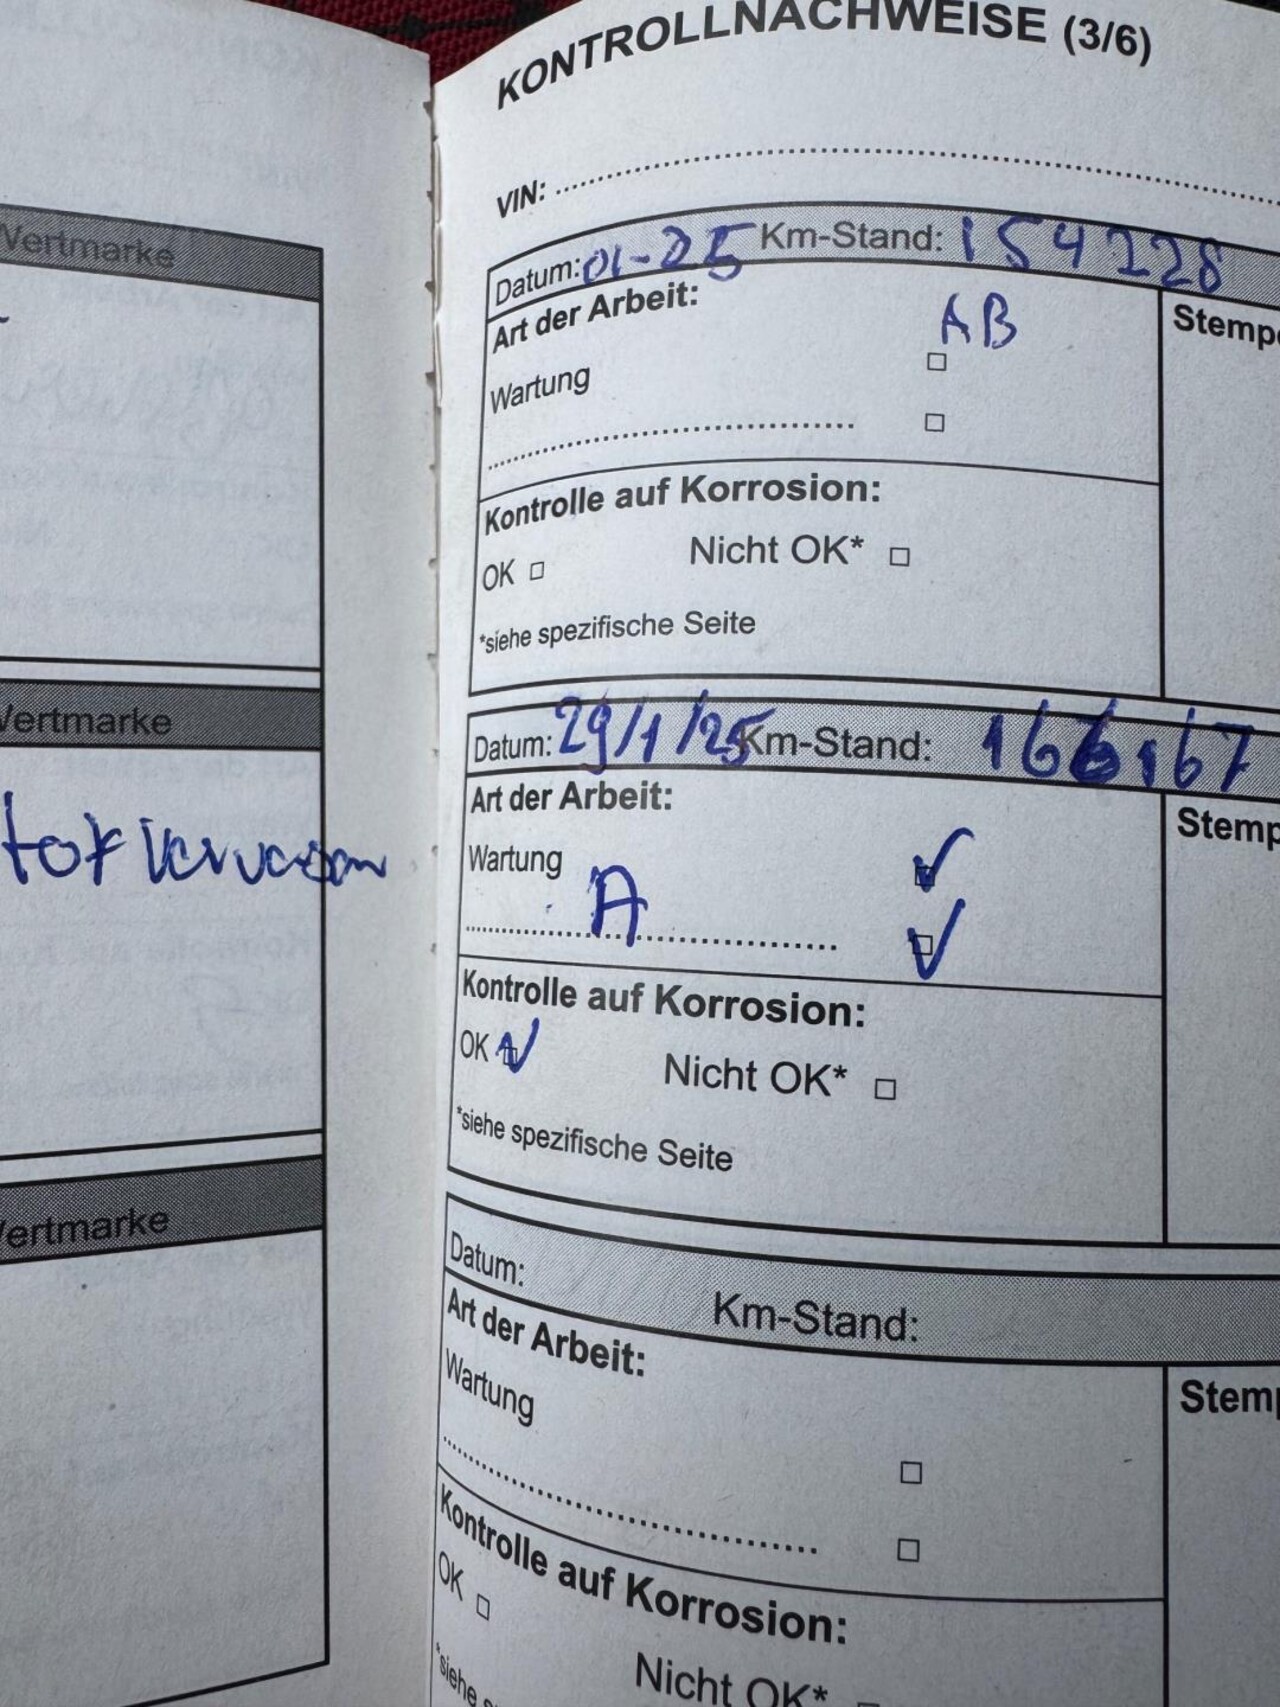 Wertmarke
Wertmarke
Wertmarke
KONTROLLNACHWEISE (3/6)
VIN:
Datum: 01-25 Km-Stand: 154228
Art der Arbeit:
AB
Wartung
Stemp
Kontrolle auf Korrosion:
OK Nicht OK*
*siehe spezifische Seite
Datum: 29/1/25 Km-Stand: 166167
Art der Arbeit:
Wartung
A
Stemp
Kontrolle auf Korrosion:
OK Nicht OK*
*siehe spezifische Seite
Datum: Km-Stand:
Art der Arbeit:
Wartung
Stemp
Kontrolle auf Korrosion:
OK
Nicht OK*
*siehe